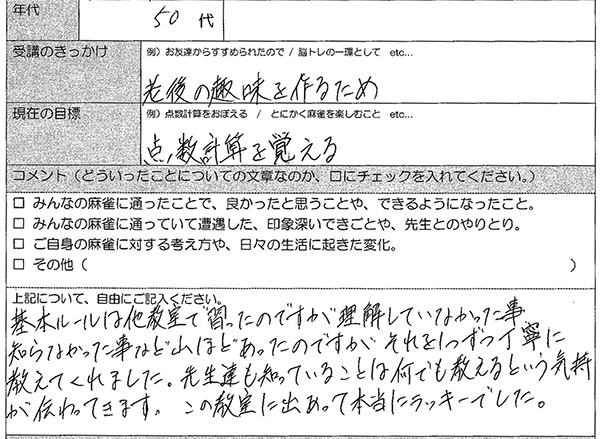 年代
50 代
受講のきっかけ
例）お友達からすすめられたので / 脳トレの一環として etc...
老後の趣味を作るため
現在の目標
例）点数計算をおぼえる / とにかく麻雀を楽しむこと etc...
点数計算を覚える
コメント（どういったことについての文章なのか、口にチェックを入れてください。）
□ みんなの麻雀に通ったことで、良かったと思うことや、できるようになったこと。
□ みんなの麻雀に通っていて遭遇した、印象深いできごとや、先生とのやりとり。
□ ご自身の麻雀に対する考え方や、日々の生活に起きた変化。
□ その他（ ）
上記について、自由にご記入ください。
基本ルールは他教室で習ったのですが理解していなかった事
知らなかった事など山ほどあったのですが それを1つずつ丁寧に
教えてくれました。先生達も知っていることは何でも教えるという気持
が伝わってきます。 この教室に出あって本当にラッキーでした。